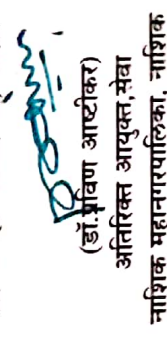 (डॉ.प्रविण आष्टीकर)
अतिरिक्त आयुक्त,सेवा
नाशिक महानगरपालिका, नाशिक